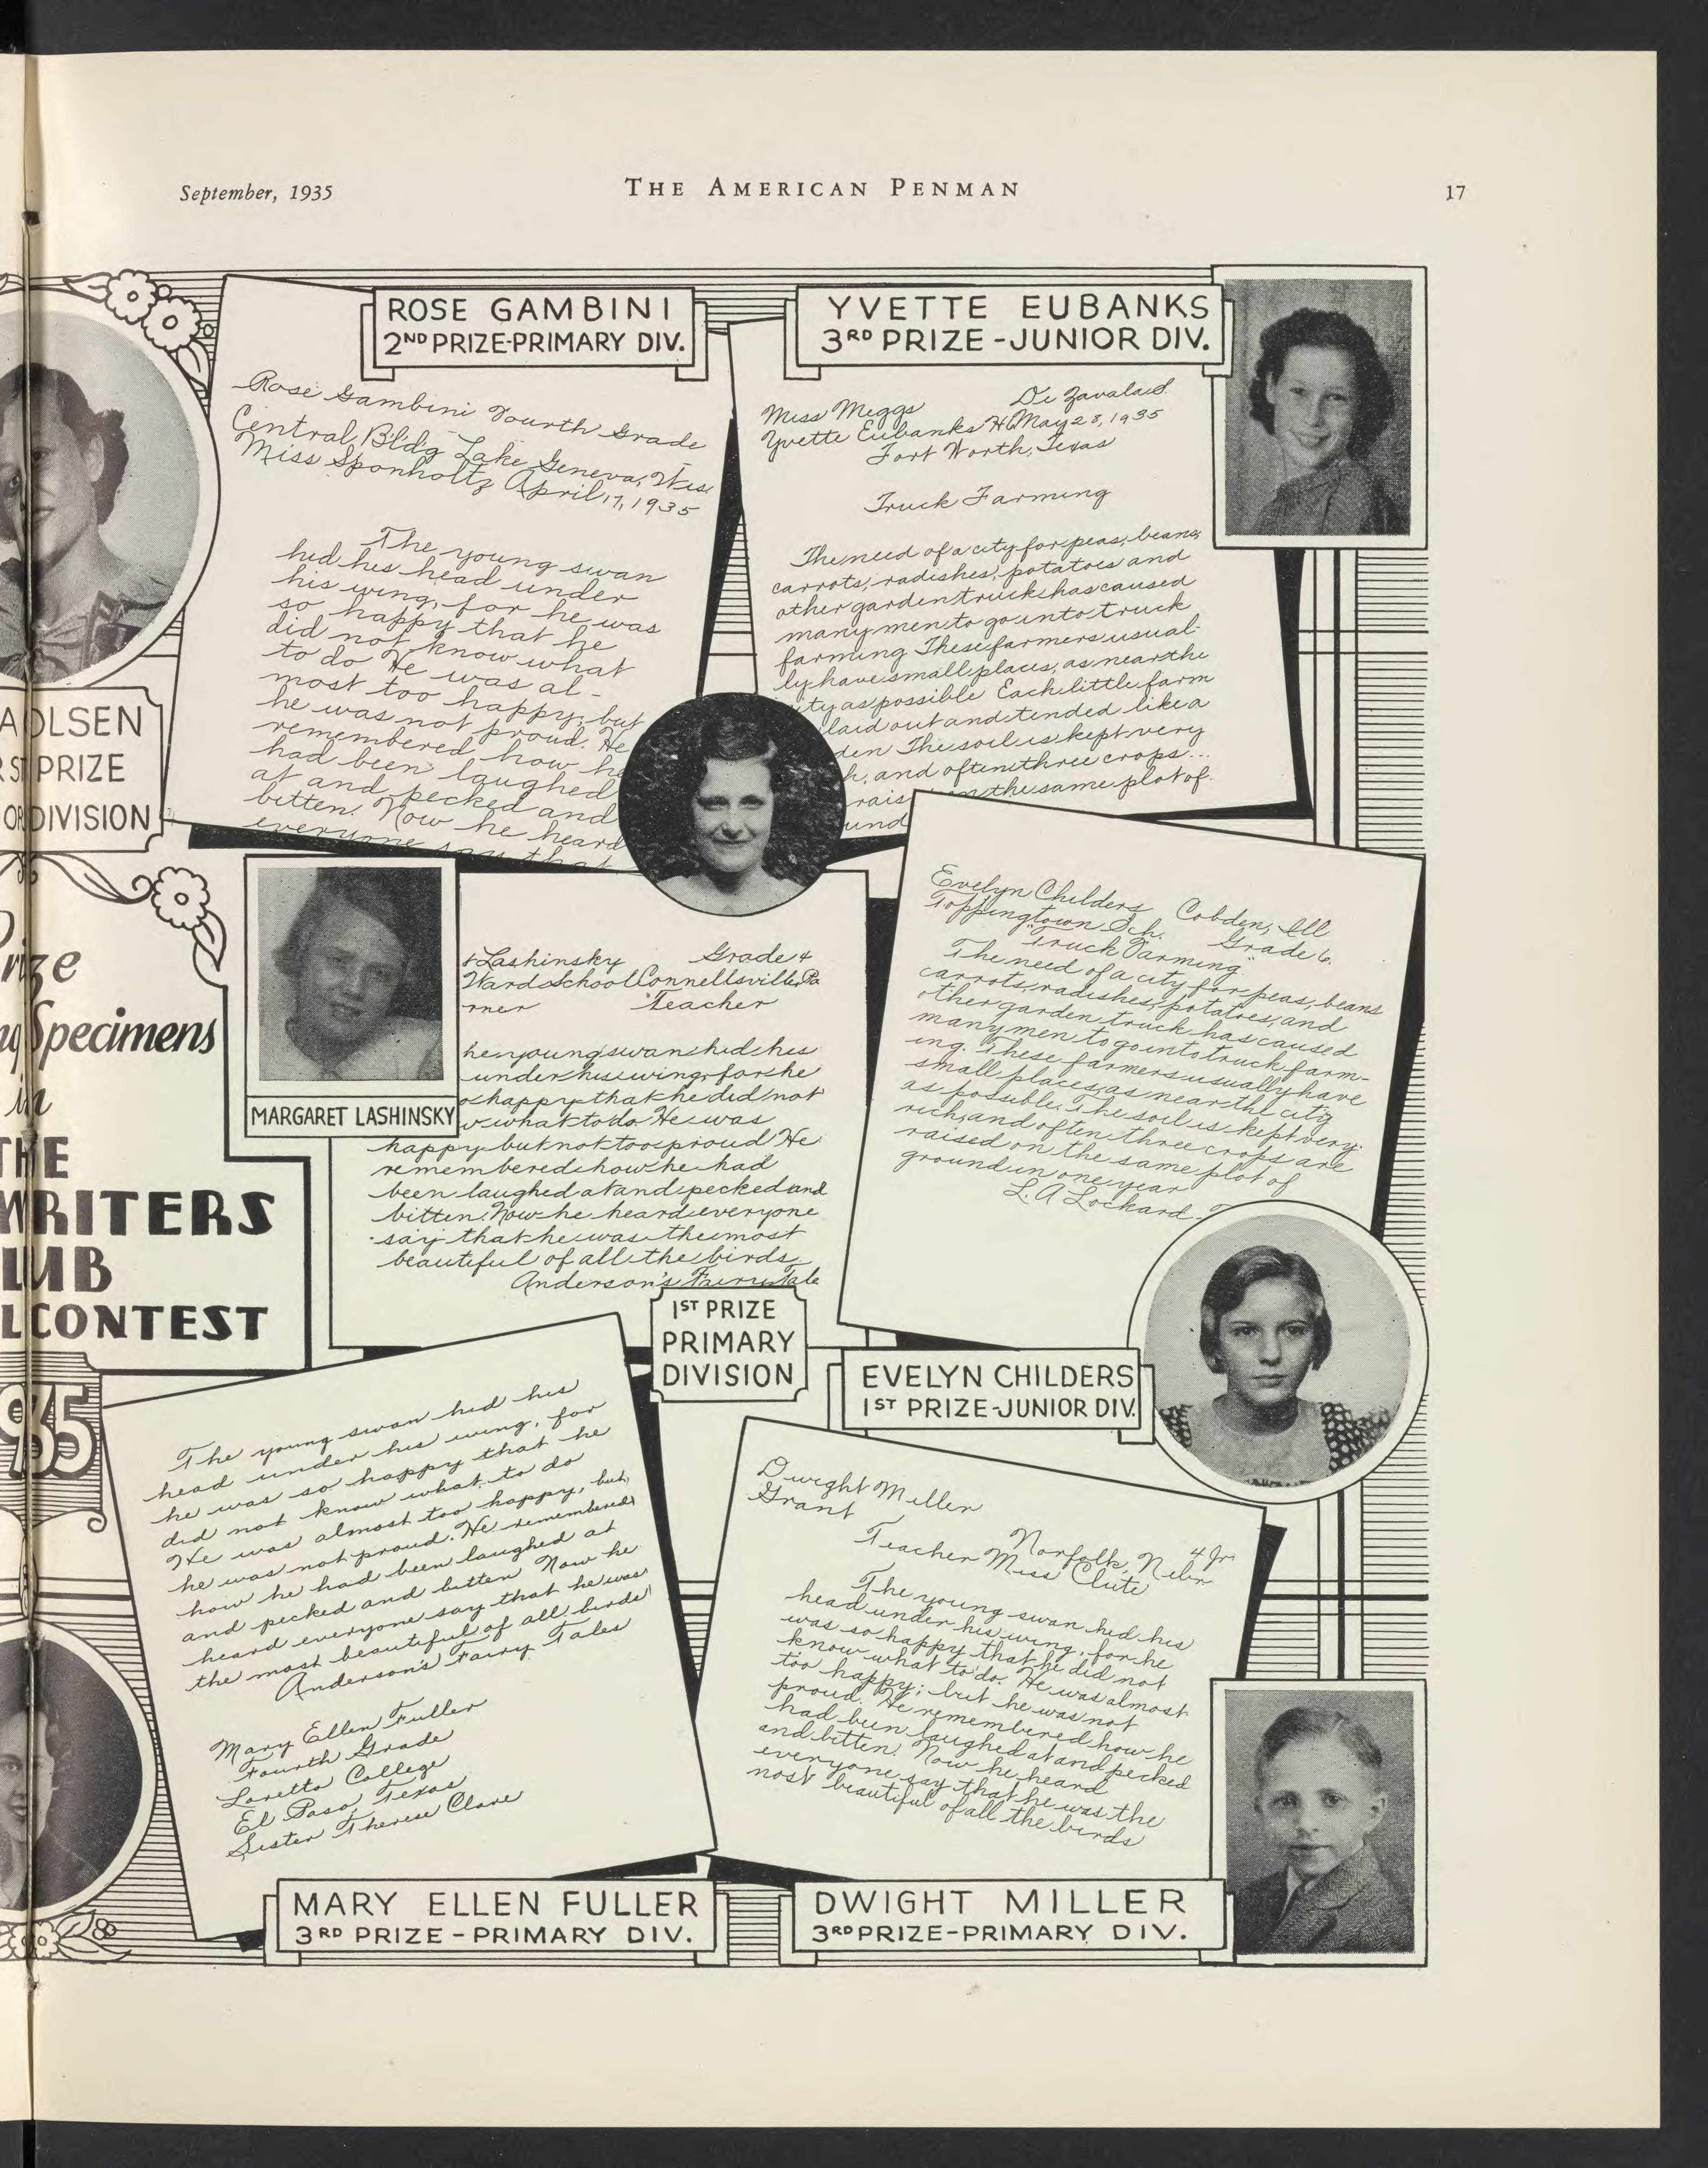 September, 1935
THE AMERICAN PENMAN
17
ROSE GAMBINI
2ND PRIZE-PRIMARY DIV.
Rose Gambini Fourth Grade
Central Bldg Lake Geneva, Wis.
Miss Sponholtz April 17, 1935
The young swan
hid his head under
his wing, for he was
so happy that he
did not know what
to do He was al-
most too happy; but
he was not proud. He
remembered how he
had been laughed
at and pecked and
bitten. Now he heard
everyone say that
YVETTE EUBANKS
3RD PRIZE-JUNIOR DIV.
Miss Meggs
Yvette Eubanks May 28, 1935
Fort Worth, Texas
Truck Farming
The need of a city for peas, beans,
carrots, radishes, potatoes and
other garden truck has caused
many men to go into truck
farming These farmers usual-
ly have small places, as near the
ity as possible Each little farm
laid out and tended like a
den The soil is kept very
h, and often three crops...
rais on the same plot of
und
AOLSEN
RST PRIZE
OR DIVISION
rize
ng Specimens
in
THE
WRITERS
LUB
L CONTEST
935
MARGARET LASHINSKY
t Lashinsky Grade 4
Ward School Connellsville, Pa
mer Teacher
he young swan hid his
under his wing, for he
o happy that he did not
w what to do He was
happy but not too proud He
remembered how he had
been laughed at and pecked and
bitten. Now he heard everyone
say that he was the most
beautiful of all the birds
Anderson's Fairy Tale
1ST PRIZE
PRIMARY
DIVISION
Evelyn Childers Cobden, Ill
Toppingtown Sch. Grade 6.
"Truck Farming."
The need of a city for peas, beans
carrots, radishes, potatoes, and
other garden truck has caused
many men to go into truck farm-
ing. These farmers usually have
small places, as near the city
as possible. The soil is kept very
rich, and often three crops are
raised on the same plot of
ground in one year
L. A Lockard
EVELYN CHILDERS
1ST PRIZE-JUNIOR DIV.
The young swan hid his
head under his wing, for
he was so happy that he
did not know what to do
He was almost too happy, but,
he was not proud. He remembered
how he had been laughed at
and pecked and bitten Now he
heard everyone say that he was
the most beautiful of all birds
Anderson's Fairy Tales
Mary Ellen Fuller
Fourth Grade
Loretto College
El Paso, Texas
Sister Therese Clare
MARY ELLEN FULLER
3RD PRIZE-PRIMARY DIV.
Dwight Miller
Grant
4 Gr.
Norfolk, Nebr
Teacher Miss Clute
The young swan hid his
head under his wing, for he
was so happy that he did not
know what to do. He was almost
too happy; but he was not
proud. He remembered how he
had been laughed at and pecked
and bitten. Now he heard
everyone say that he was the
most beautiful of all the birds
DWIGHT MILLER
3RD PRIZE-PRIMARY DIV.